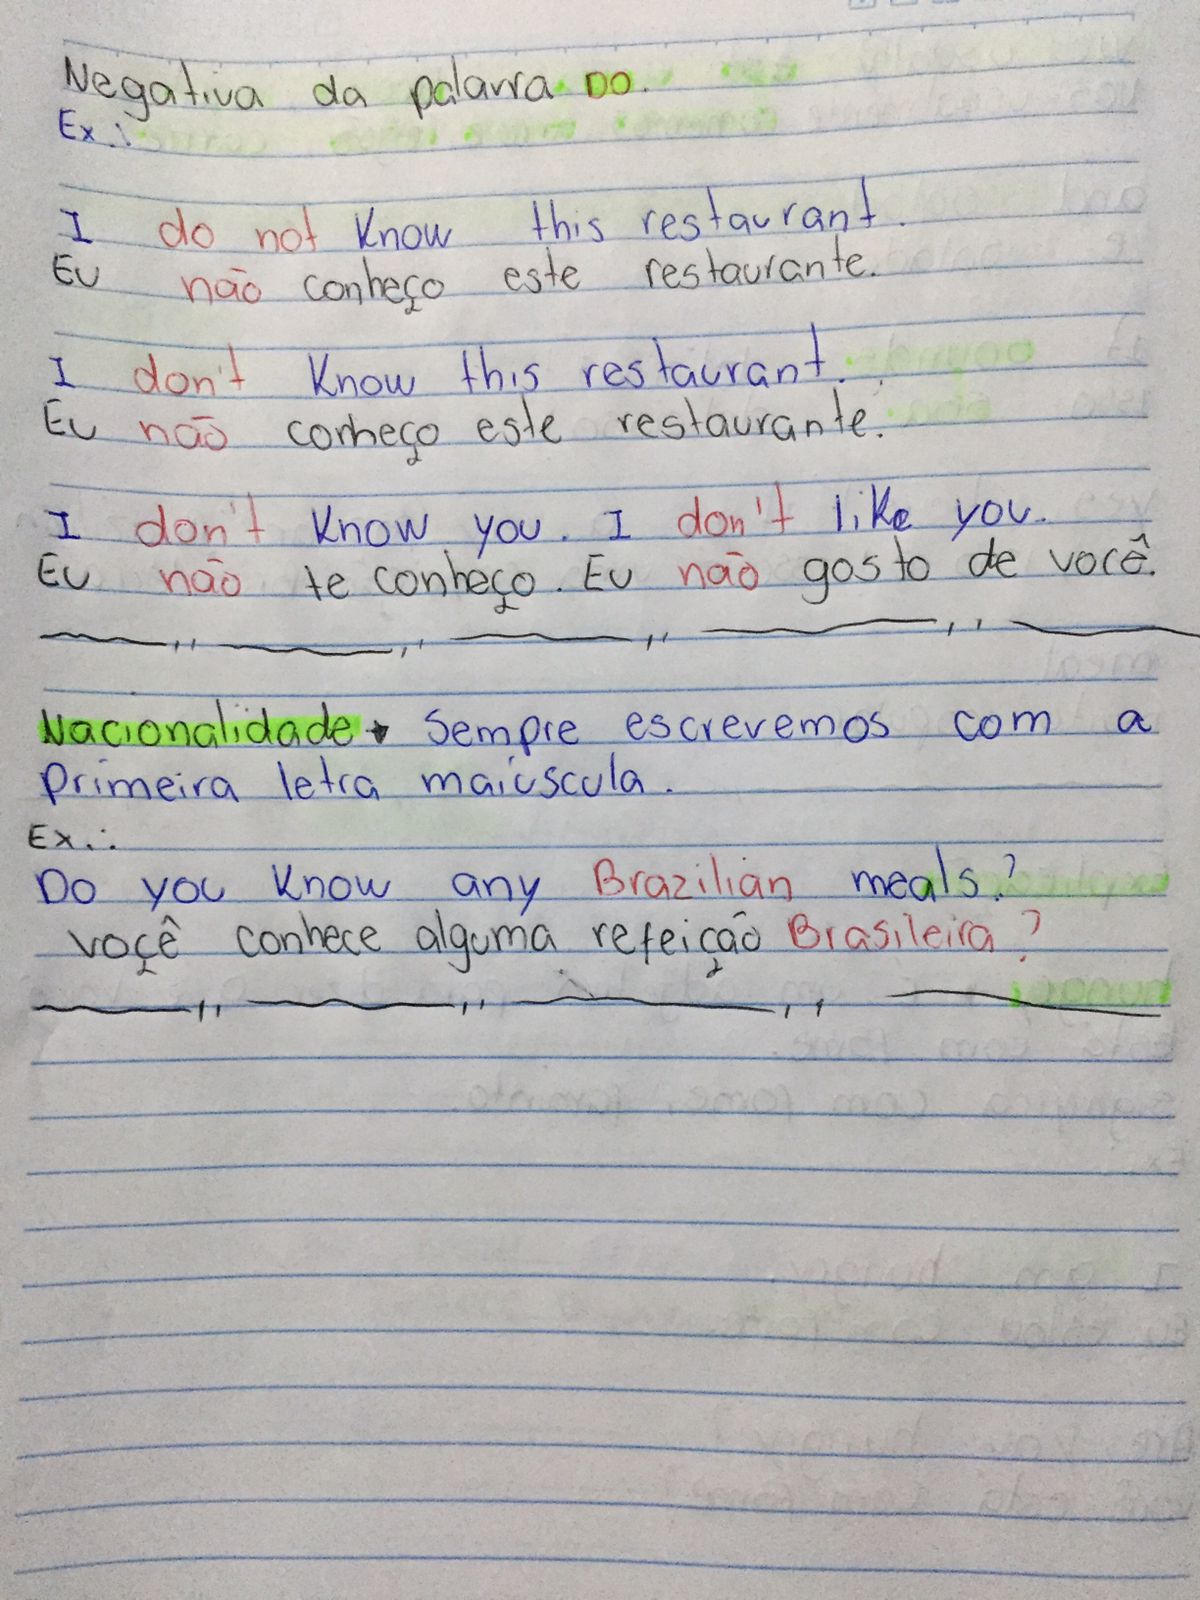 Negativa da palavra DO.
Ex.:
I do not Know this restaurant.
Eu não conheço este restaurante.
I don't Know this restaurant.
Eu não conheço este restaurante.
I don't Know you. I don't like you.
Eu não te conheço. Eu não gosto de você.
Nacionalidade → Sempre escrevemos com a
primeira letra maiúscula.
Ex.:
Do you Know any Brazilian meals?
voçê conhece alguma refeição Brasileira?